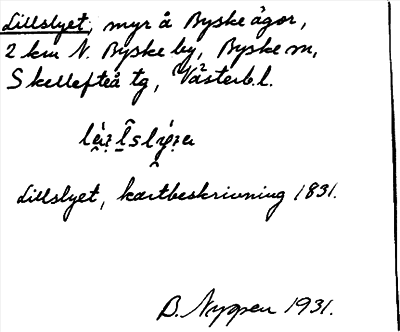 Lillslyet, myr å Byske ägor,
2 km N. Byske by, Byske sn,
Skellefteå tg, Västerb.l.
Lillslyet, kartbeskrivning 1831.
B. Nyman 1931.